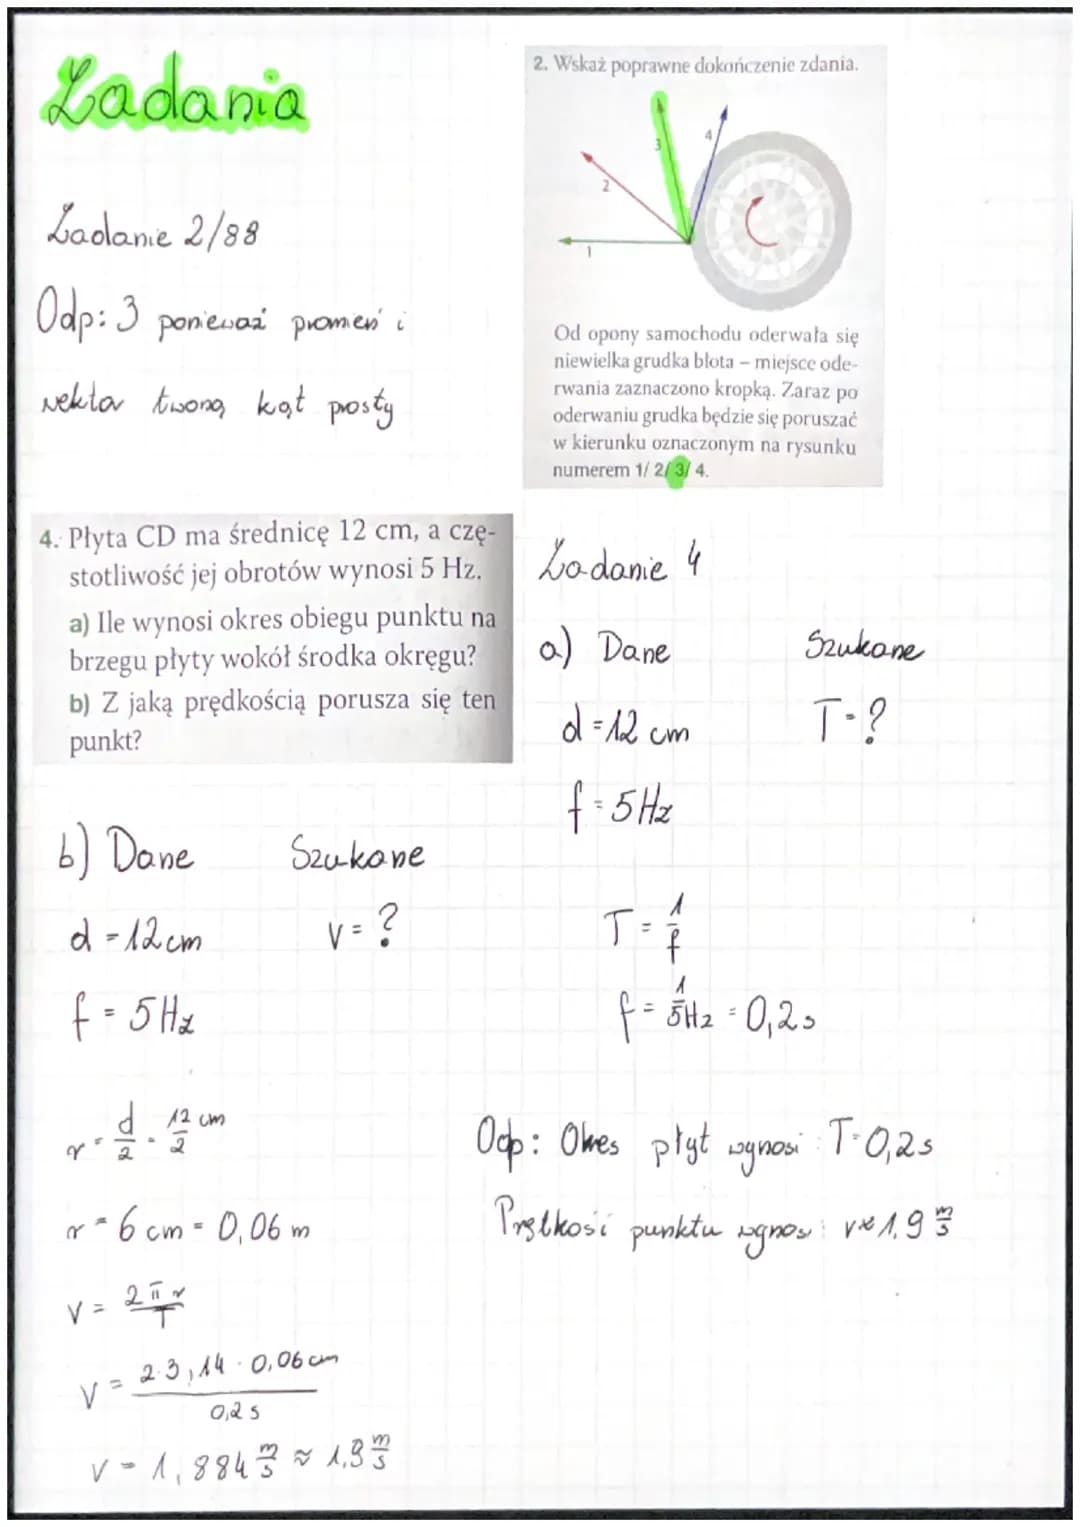 Zadania
Zadanie 2/88
Odp: 3 ponieważ promień i
wektor tworzą kąt prosty
2. Wskaż poprawne dokończenie zdania.
1
2
3
4
Od opony samochodu oderwała się
niewielka grudka błota – miejsce ode-
rwania zaznaczono kropką. Zaraz po
oderwaniu grudka będzie się poruszać
w kierunku oznaczonym na rysunku
numerem 1/ 2/ 3/ 4.
4. Płyta CD ma średnicę 12 cm, a czę-
stotliwość jej obrotów wynosi 5 Hz.
a) Ile wynosi okres obiegu punktu na
brzegu płyty wokół środka okręgu?
b) Z jaką prędkością porusza się ten
punkt?
Zadanie 4
a) Dane Szukane
d = 12 cm T = ?
f = 5 Hz
T = 1/f
f = 1/5Hz = 0,2 s
b) Dane Szukane
d = 12 cm v = ?
f = 5 Hz
r = d/2 = 12/2 cm
r = 6 cm = 0,06 m
v = 2πr/T
v = 2·3,14·0,06 cm/0,2 s
v = 1,884 m/s ≈ 1,9 m/s
Odp: Okres płyt wynosi: T=0,2s
Prętkość punktu wynosi: v≈1,9 m/s